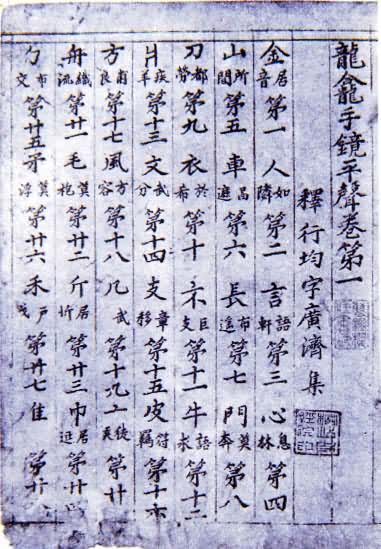 龍龕手鏡平聲卷第一
釋行均字廣濟集
金居音第一人如隣第二言語軒第三心息林第四
山所閒第五車昌遮第六長市第七門莫奔第八
刀都勞第九衣於希第十示巨支第十一牛語求第十二
爿疾羊第十三文武分第十四支章移第十五皮符羈第十六
方甫良第十七風方容第十八几武第十九工徒第廿
舟職流第廿一毛莫袍第廿二斤居忻第廿三巾居第廿四
勹布交第廿五矛莫浮第廿六禾戶戈第廿七隹第廿